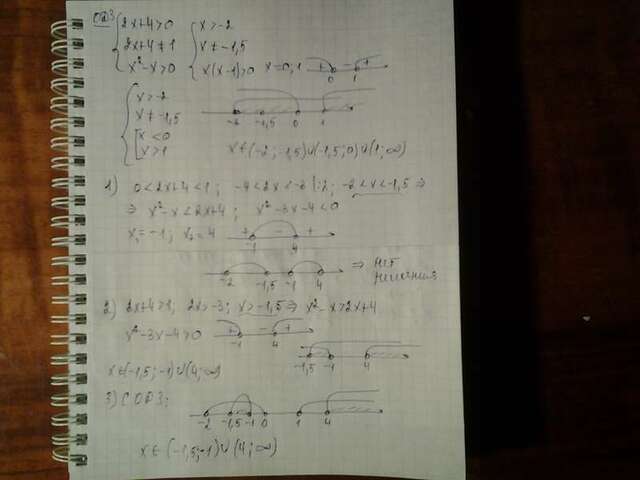 ОДЗ
{2x+4>0 {x>-2
2x+4≠1 x≠-1,5
x²-x>0 x(x-1)>0 x=0,1 + - +
0 1
{x>-2
x≠-1,5
[x<0
x>1
-2 -1,5 0 1
x∈(-2;-1,5)∪(-1,5;0)∪(1;∞)
1) 0<2x+4<1; -4<2x<-3 |:2; -2<x<-1,5 ⇒
⇒ x²-x<2x+4; x²-3x-4<0
x₁=-1; x₂=4 + - +
-1 4
-2 -1,5 -1 4 ⇒ нет
решения
2) 2x+4>1, 2x>-3; x>-1,5 ⇒ x²-x>2x+4
x²-3x-4>0 + - +
-1 4
-1,5 -1 4
x∈(-1,5;-1)∪(4;∞)
3) С ОДЗ:
-2 -1,5 -1 0 1 4
x∈(-1,5;-1)∪(4;∞)